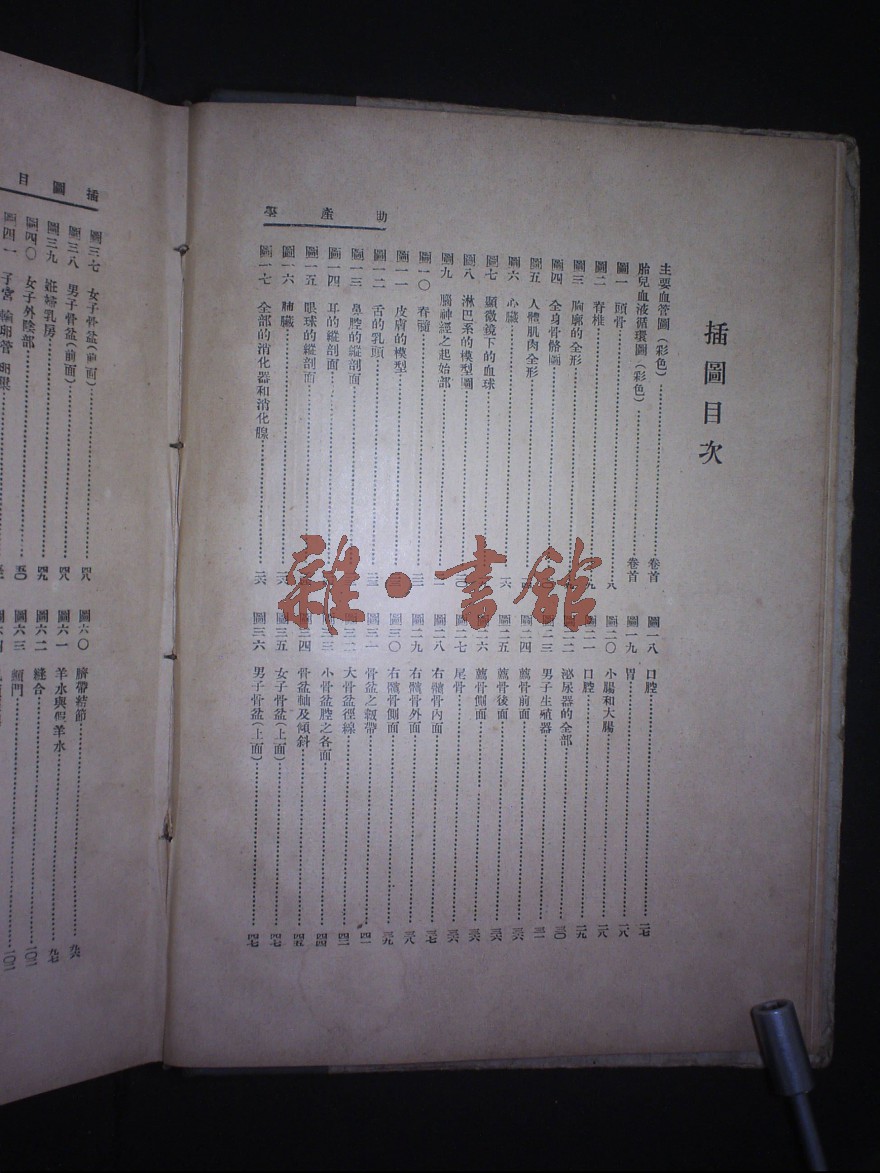 插圖目次
主要血管圖(彩色)……卷首
胎兒血液循環圖(彩色)……卷首
圖一 頭骨……八
圖二 脊椎……九
圖三 胸廓的全形
圖四 全身骨骼圖
圖五 人體肌肉全形
圖六 心臟……一六
圖七 顯微鏡下的血球
圖八 淋巴系的模型圖
圖九 腦神經之起始部
圖一〇 脊髓
圖一一 皮膚的模型
圖一二 舌的乳頭
圖一三 鼻腔的縱剖面
圖一四 耳的縱剖面
圖一五 眼球的縱剖面
圖一六 肺臟
圖一七 全部的消化器和消化腺……二六
圖一八 口腔……二七
圖一九 胃……二八
圖二〇 小腸和大腸……二八
圖二一 口腔……二九
圖二二 泌尿器的全部……三〇
圖二三 男子生殖器……三一
圖二四 薦骨前面……三六
圖二五 薦骨後面……三六
圖二六 薦骨側面……三六
圖二七 尾骨……三六
圖二八 右髖骨內面……三七
圖二九 右髖骨外面……三八
圖三〇 右髖骨側面……三九
圖三一 骨盆之靱帶……四一
圖三二 大骨盆徑線……四二
圖三三 小骨盆腔之各面……四四
圖三四 骨盆軸及傾斜……四五
圖三五 女子骨盆(上面)……四七
圖三六 男子骨盆(上面)……四七
助產學
插圖目
圖三七 女子骨盆(前面)……四八
圖三八 男子骨盆(前面)……四八
圖三九 妊婦乳房……四九
圖四〇 女子外陰部……五〇
圖四一 子宮 輸卵管 卵巢
圖六〇 臍帶結節……九六
圖六一 羊水與假羊水……九七
圖六二 縫合……一〇二
圖六三 顖門……一〇二
雜·書館